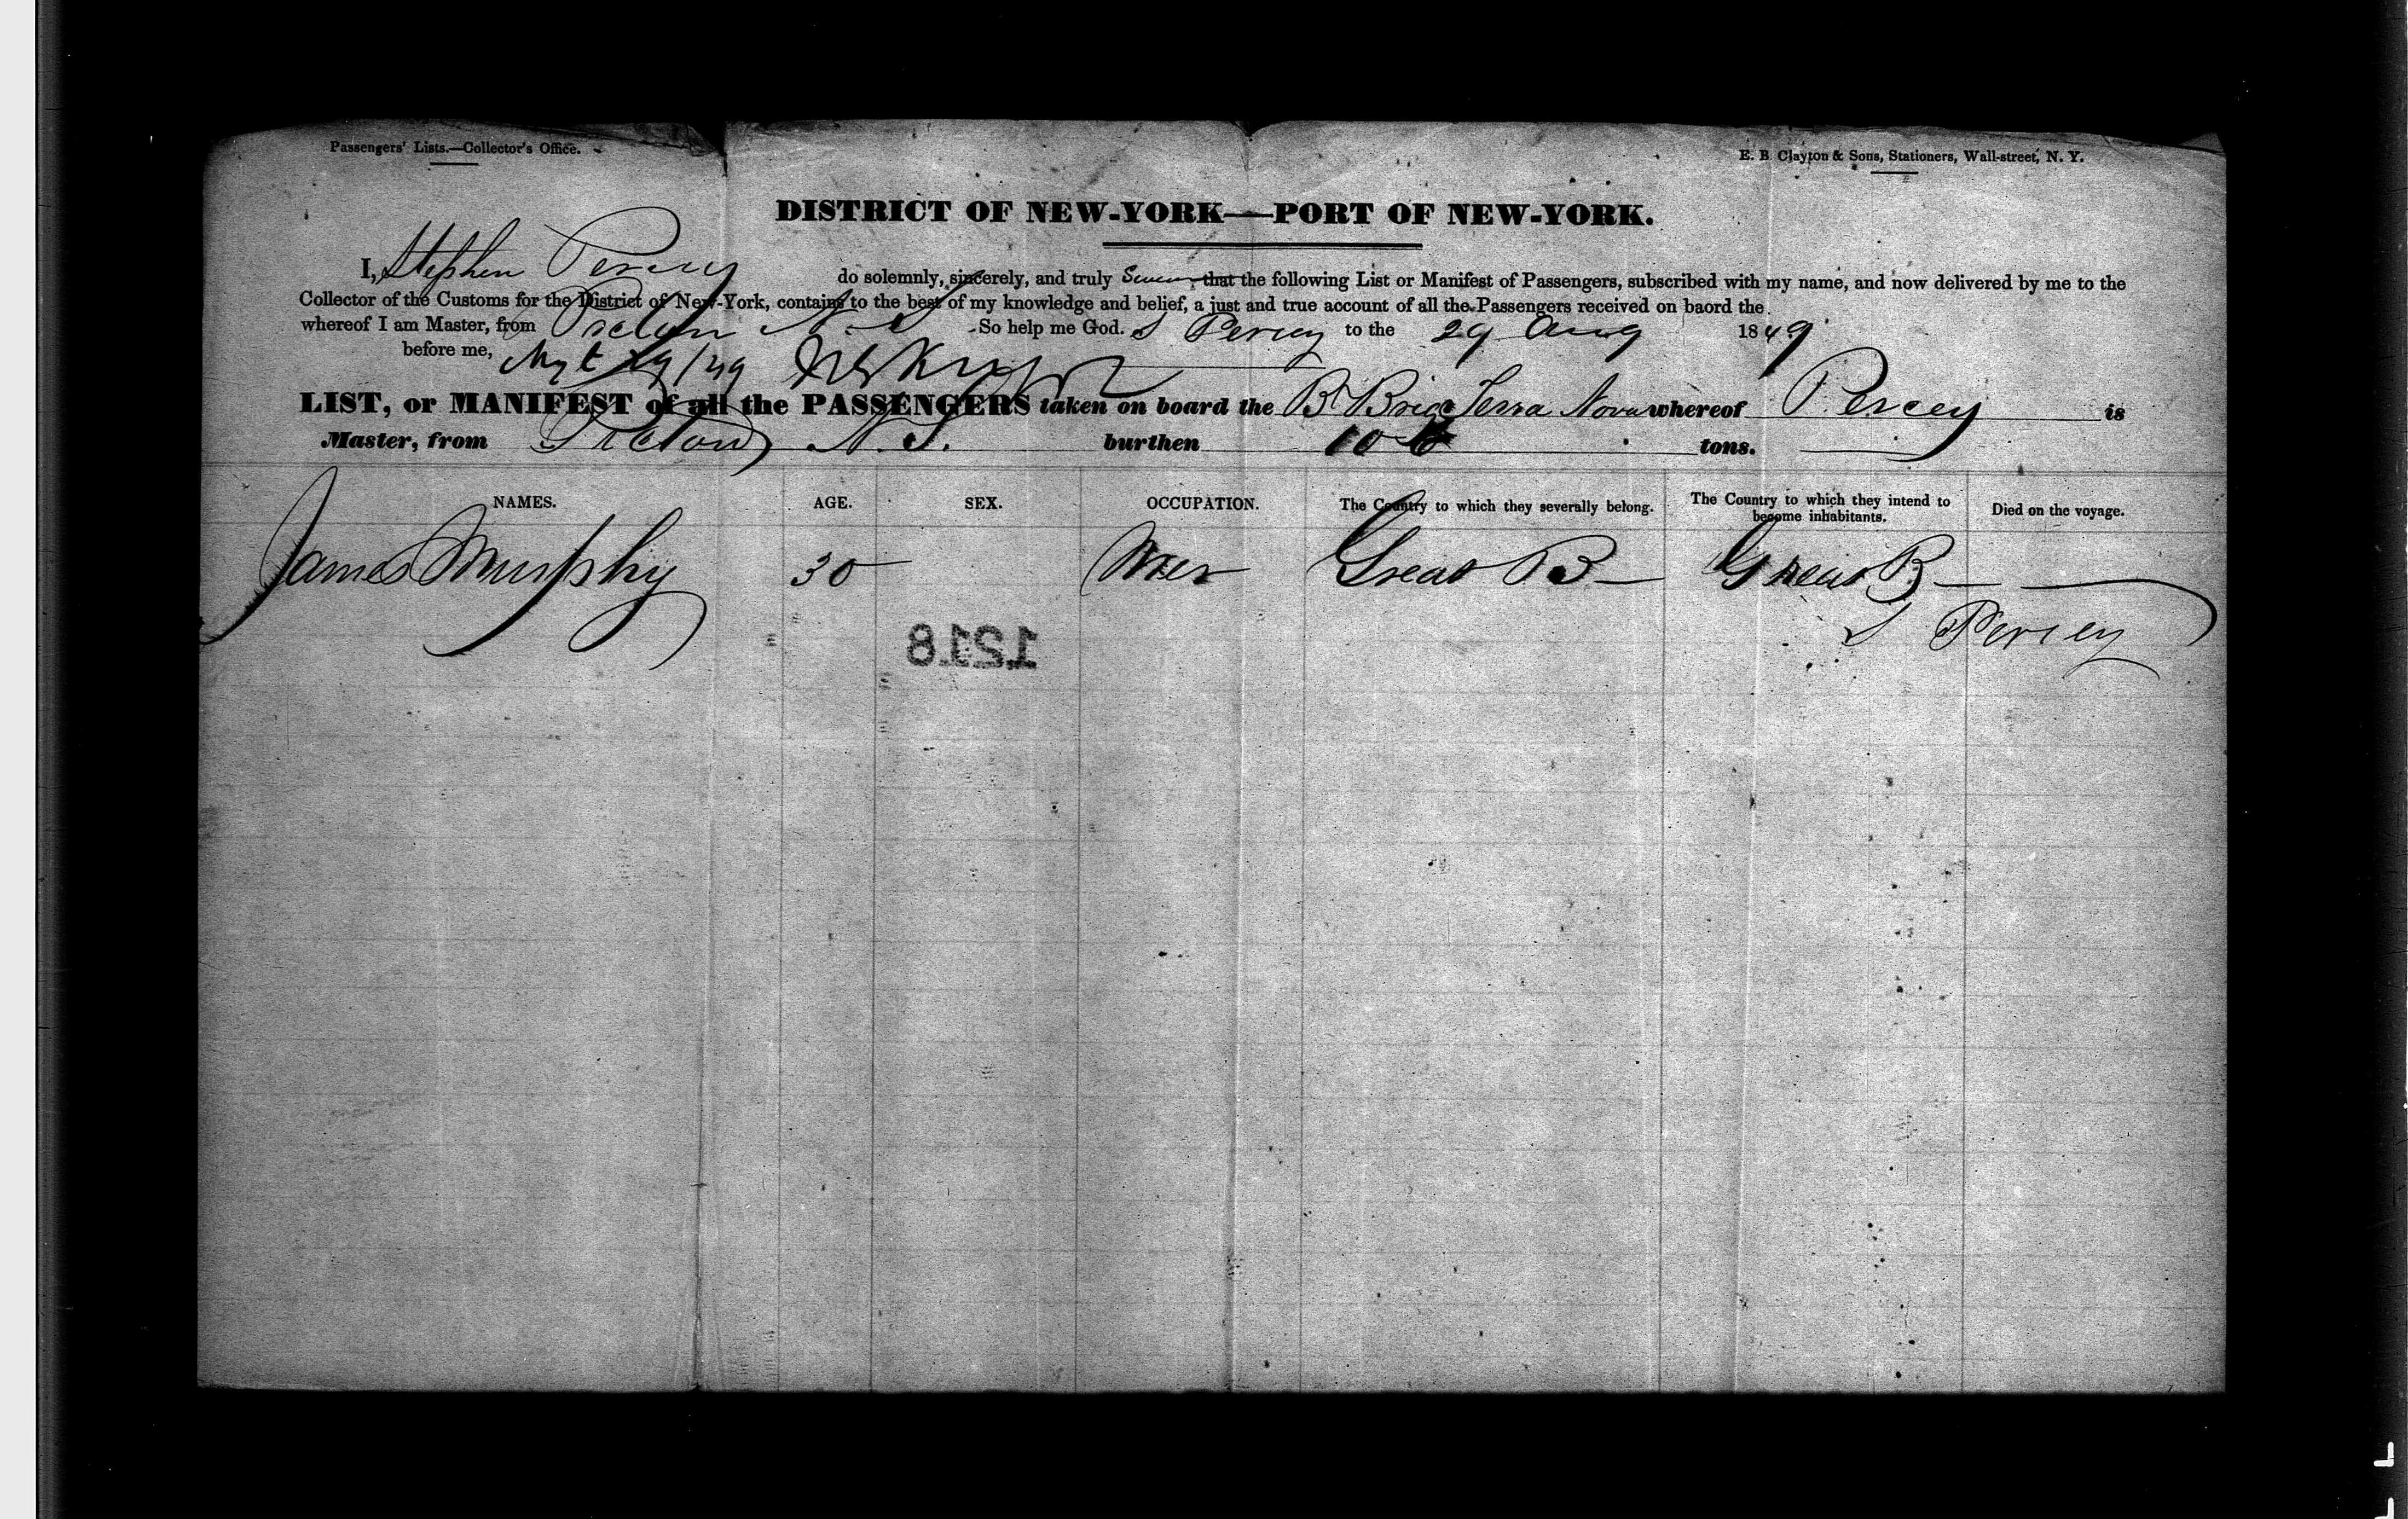 Passengers' Lists.—Collector's Office.
E. B. Clayton & Sons, Stationers, Wall-street, N. Y.
DISTRICT OF NEW-YORK—PORT OF NEW-YORK.
I, Stephen Percey do solemnly, sincerely, and truly Swear that the following List or Manifest of Passengers, subscribed with my name, and now delivered by me to the
Collector of the Customs for the District of New-York, contains to the best of my knowledge and belief, a just and true account of all the Passengers received on baord the
whereof I am Master, from Pictou N. S. So help me God. S Percey to the 29 Aug 1849
before me, 29/49
LIST, or MANIFEST of all the PASSENGERS taken on board the Br Brig Terra Nova whereof Percey is
Master, from Pictou N. S. burthen 106 tons.
NAMES. AGE. SEX. OCCUPATION. The Country to which they severally belong. The Country to which they intend to become inhabitants. Died on the voyage.
James Murphy 30 Mer Great B— Great B—
S Percey
1218